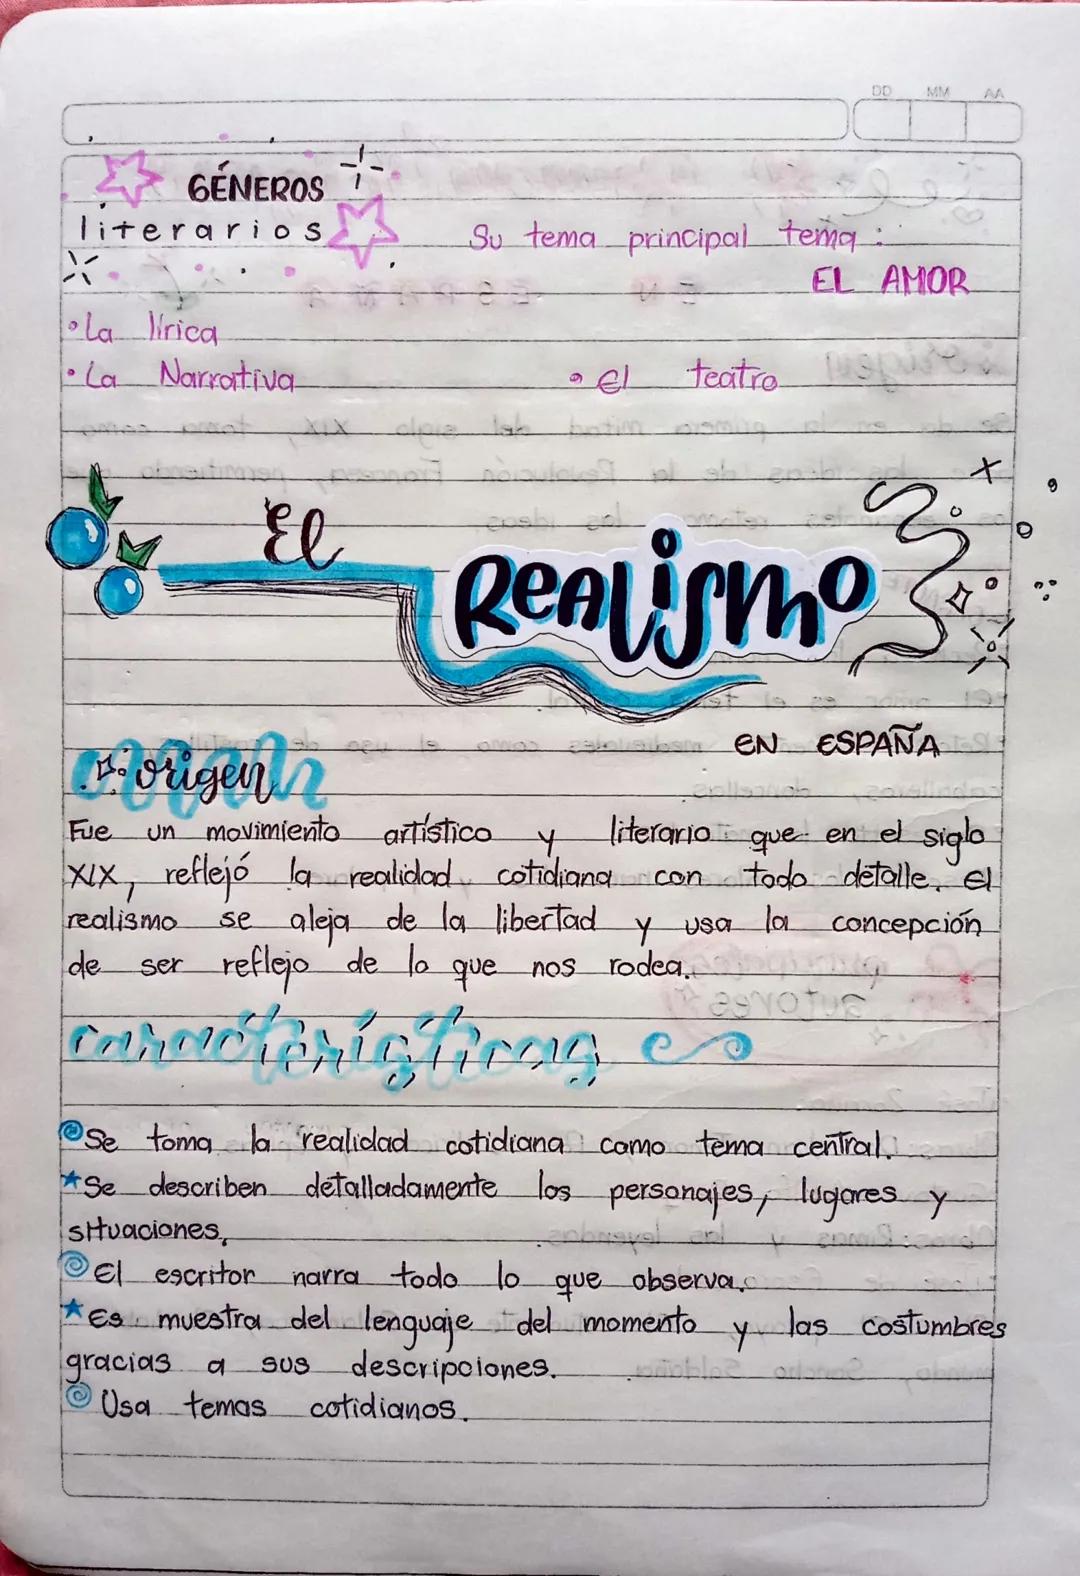 DD MM AA
GÉNEROS
literarios
Su tema principal tema :
EL AMOR
• La lírica
• La Narrativa
• El teatro
El
REALISMO
EN ESPAÑA
origen
Fue un movimiento artístico y literario que en el siglo
XIX, reflejó la realidad cotidiana con todo detalle. El
realismo se aleja de la libertad y usa la concepción
de ser reflejo de lo que nos rodea.
características
Se toma la realidad cotidiana como tema central.
★ Se describen detalladamente los personajes, lugares y
situaciones.
El escritor narra todo lo que observa.
★ Es muestra del lenguaje del momento y las costumbres
gracias a sus descripciones.
Usa temas cotidianos.